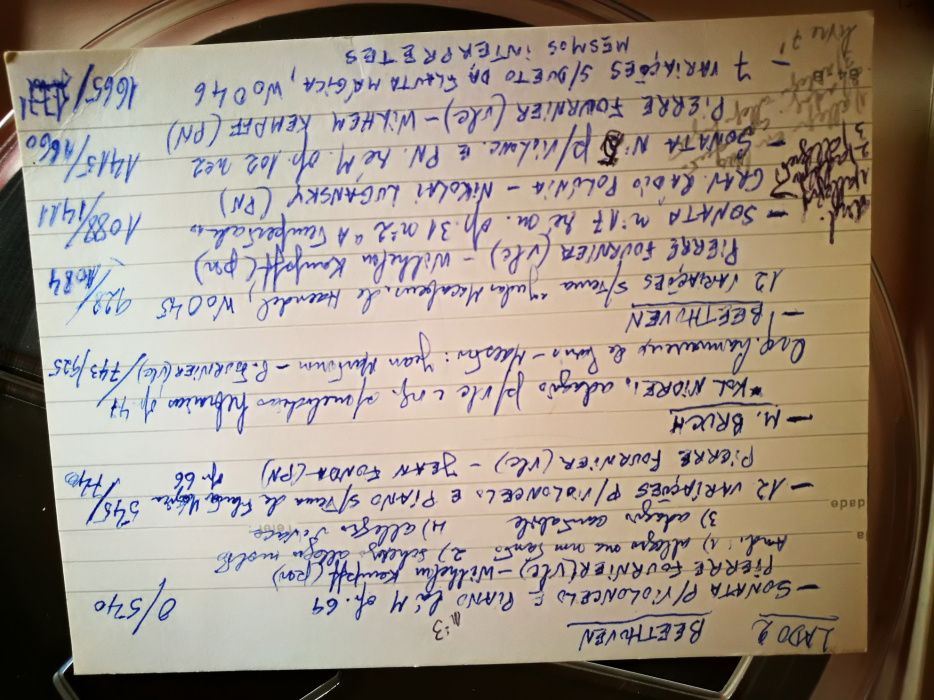 LADO 2 BEETHOVEN
– SONATA P/VIOLONCELO E PIANO Lá M op. 69 nº3 0/540
PIERRE FOURNIER (vlc) – Wilhelm Kempff (pn)
And.: 1) allegro ma non tanto 2) scherzo allegro molto
3) adagio cantabile 4) allegro vivace
– 12 VARIAÇÕES P/VIOLONCELO E PIANO s/Tema da Flauta Mágica 545/740
PIERRE FOURNIER (Vlc) – JEAN FONDA (PN) op 66
– M. BRUCH
KOL NIDREI, adagio p/vlc e orq. s/melodias hebraicas op. 47
Orq. Lamoureux de Paris – Maestro: Jean Martinon – P. FOURNIER (Vlc) /743/925
– BEETHOVEN
12 VARIAÇÕES s/Tema Judas Macabeus, de Haendel, WoO 45 928/1084
PIERRE FOURNIER (Vlc) – Wilhelm Kempff (pn)
– SONATA nº 17 Ré m. op. 31 nº 2 "A Tempestade" 1088/1411
GRAV. RADIO POLÔNIA – NIKOLAI LUGANSKY (PN)
– SONATA N. 5 p/violonc. E PN. Ré M. op. 102 nº2 1415/1660
PIERRE FOURNIER (Vlc) – WILHEM KEMPFF (PN)
7 VARIAÇÕES S/DUETO DA FLAUTA MÁGICA, WoO 46 1665/
MESMOS INTERPRETES